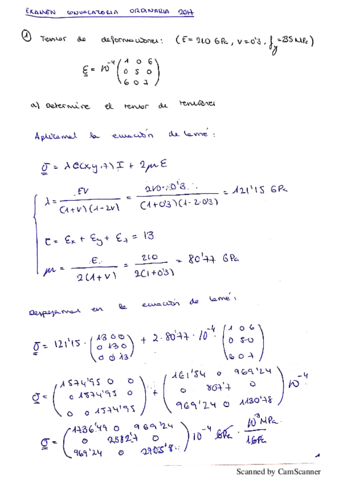 EXAMEN CONVOCATORIA ORDINARIA 2017
① Tensor de deformaciones: (E=210 GPa, ν=0'3, fy=  MPa)
ε = 10⁻⁴ (1 0 6
0 5 0
6 0 7)
a) Determine el tensor de tensiones
Aplicamos la ecuación de Lamé:
σ = λ e(x,y,z) I + 2μ E
λ = Eν / (1+ν)(1-2ν) = 210·0'3 / (1+0'3)(1-2·0'3) = 121'15 GPa
e = εx + εy + εz = 13
μ = E / 2(1+ν) = 210 / 2(1+0'3) = 80'77 GPa
Despejamos en la ecuación de Lamé:
σ = 121'15 · (13 0 0
0 13 0
0 0 13) + 2·80'77·10⁻⁴ (1 0 6
0 5 0
6 0 7)
σ = (1574'95 0 0
0 1574'95 0
0 0 1574'95) + (161'54 0 969'24
0 807'7 0
969'24 0 1130'78) 10⁻⁴
σ = (1736'49 0 969'24
0 2382'7 0
969'24 0 2705'8) 10⁻⁴ GPa · 10³ MPa / 1 GPa
Scanned by CamScanner